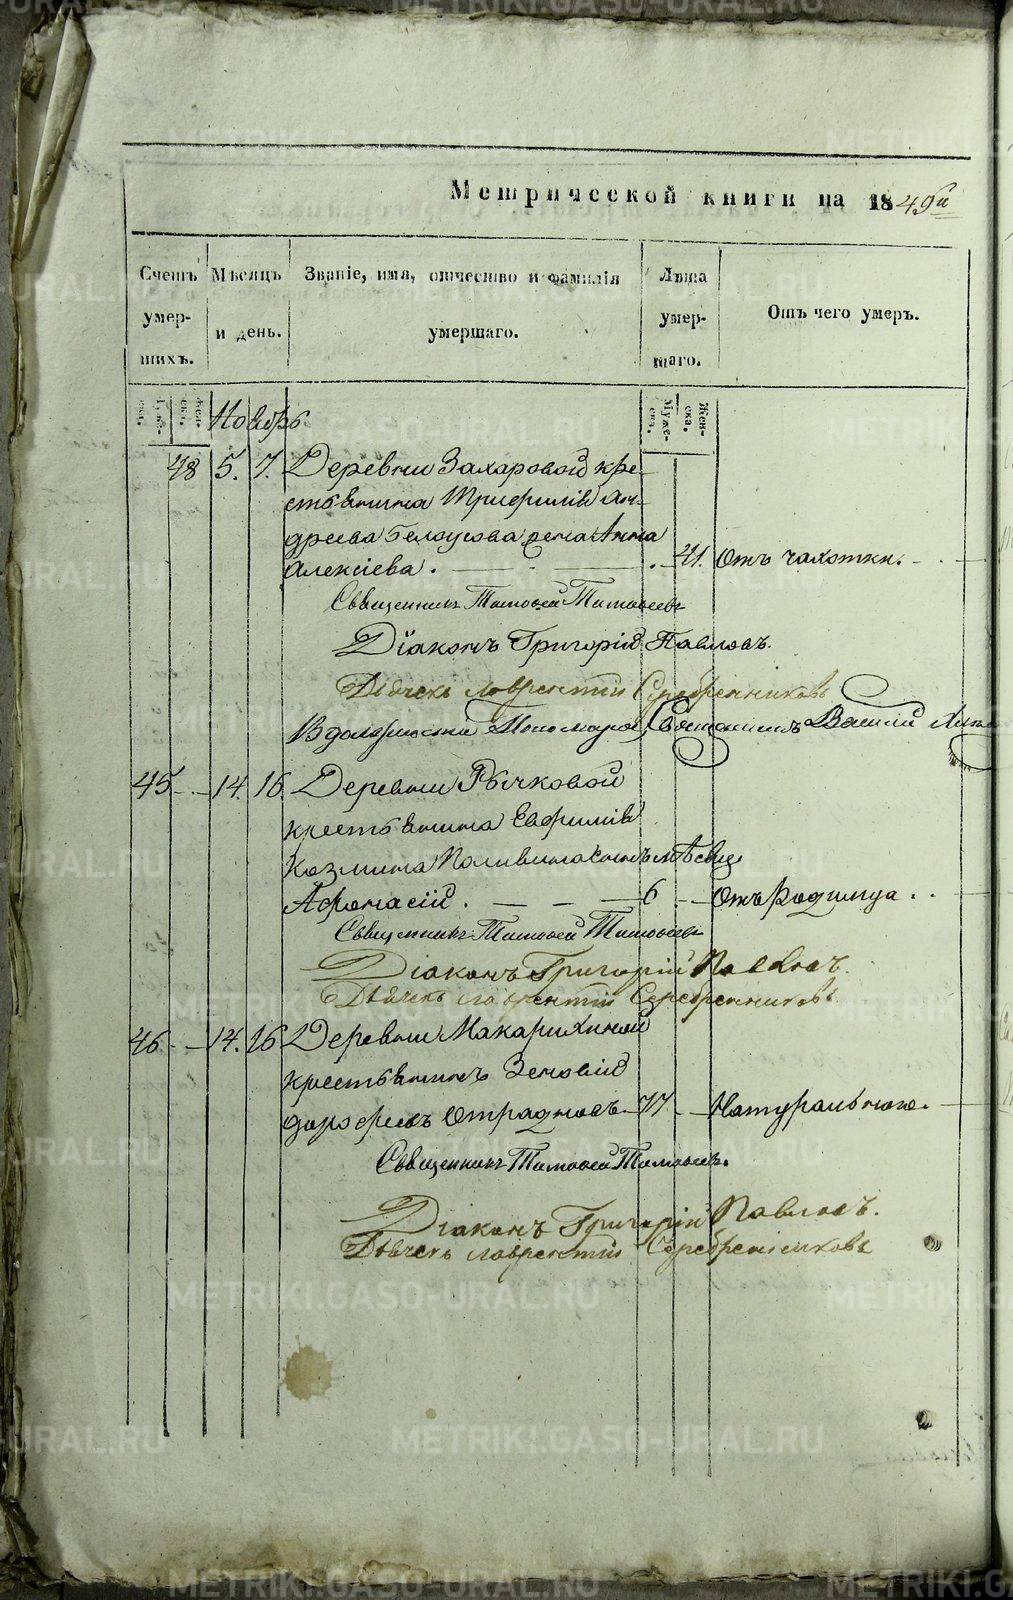 Метрической книги на 1849й
Счетъ умер- шихъ.
Мѣсяцъ и день.
Званіе, имя, отчество и фамилія умершаго.
Лѣта умер- шаго.
Отъ чего умеръ.
Муже- ска. Жен- ска.
Ноябрь
48 5. 7. Деревни Захаровой кре-
стьянина Трифилія Ан-
дреева Белоусова жена Анна
Алексіева. 41. Отъ чахотки.
Священникъ Тимофей Тимофеевъ
Діаконъ Григорій Павловъ.
Дьячекъ Лаврентій Серебренниковъ
В должности Пономаря Василій
45 14. 16 Деревни Рычковой
крестьянина Евфимія
Козмина сынъ мѣсяц
Афонасій. 6 Отъ Родимца.
Священникъ Тимофей Тимофеевъ
Діаконъ Григорій Павловъ.
Дьячекъ Лаврентій Серебренниковъ
46 14. 16 Деревни Макарихиной
крестьянинъ Зеновій
Дорофеевъ Отрадновъ 77 Натурального.
Священникъ Тимофей Тимофеевъ.
Діаконъ Григорій Павловъ.
Дьячекъ Лаврентій Серебренниковъ
METRIKI.GASO-URAL.RU